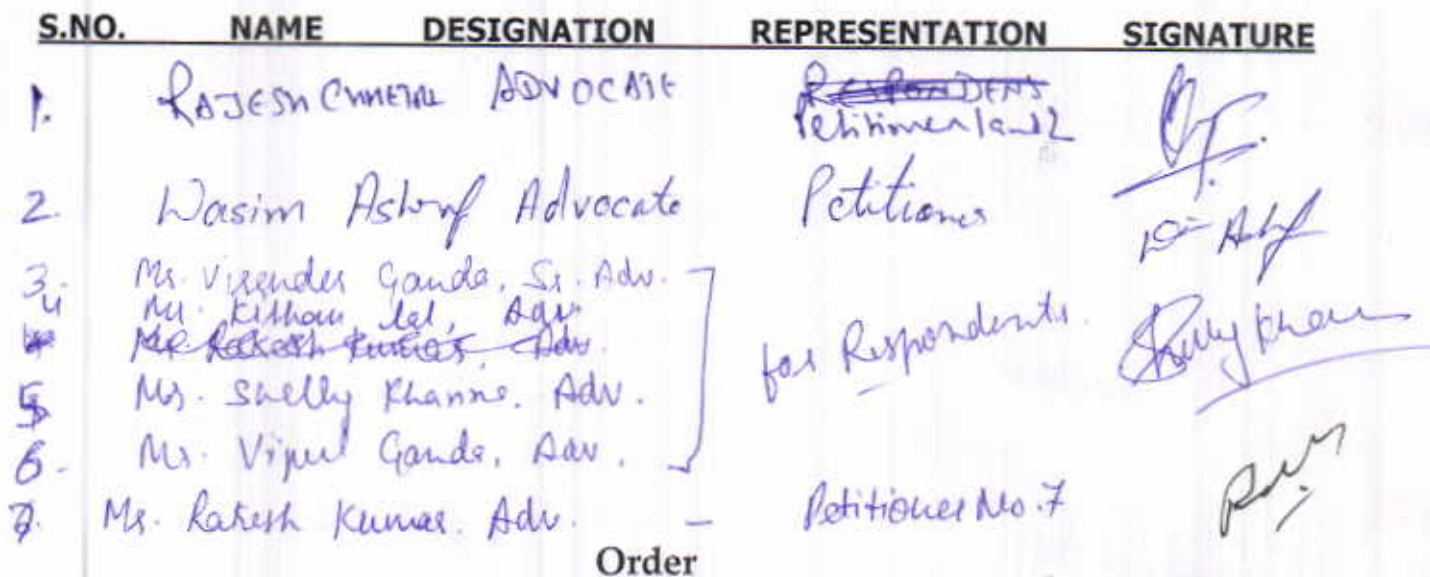 S.NO. NAME DESIGNATION REPRESENTATION SIGNATURE
1. RAJESH ADVOCATE RESPONDENT
Petitioner 1 and 2
2. Wasim Ashraf Advocate Petitioner
3. Mr. Virender Ganda, Sr. Adv.
4 Mr. Kishan Lal, Adv
Mr. Rakesh Kumar, Adv.
for Respondents.
5 Ms. Shelly Khanna, Adv.
6. Mr. Vipul Ganda, Adv.
7. Mr. Rakesh Kumar, Adv. - Petitioner No. 7
Order